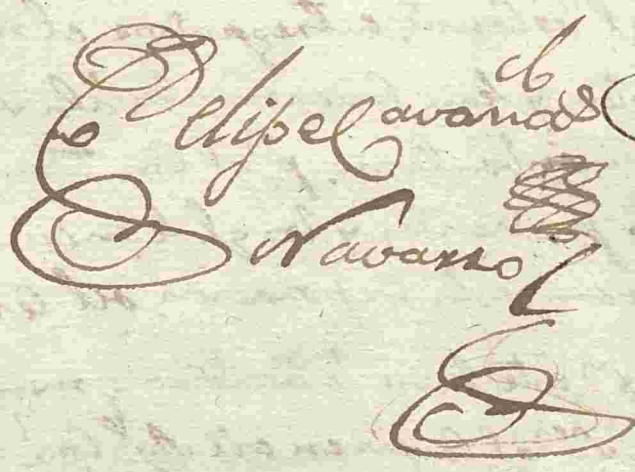 Felipe Cavanas
Navarro